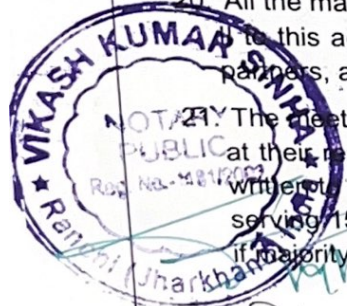 20. All the ma
to this a
partners, a
21. The meet
at their re
serving 15
if majority
VIKASH KUMAR SINHA
NOTARY
PUBLIC
Reg. No.
Ranchi (Jharkhand)